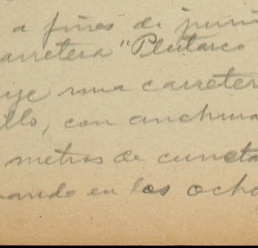 a fines de juni
carretera "Plutarco
uye una carreter
llo, con anchura
metros de cuneta
nando en los ocho